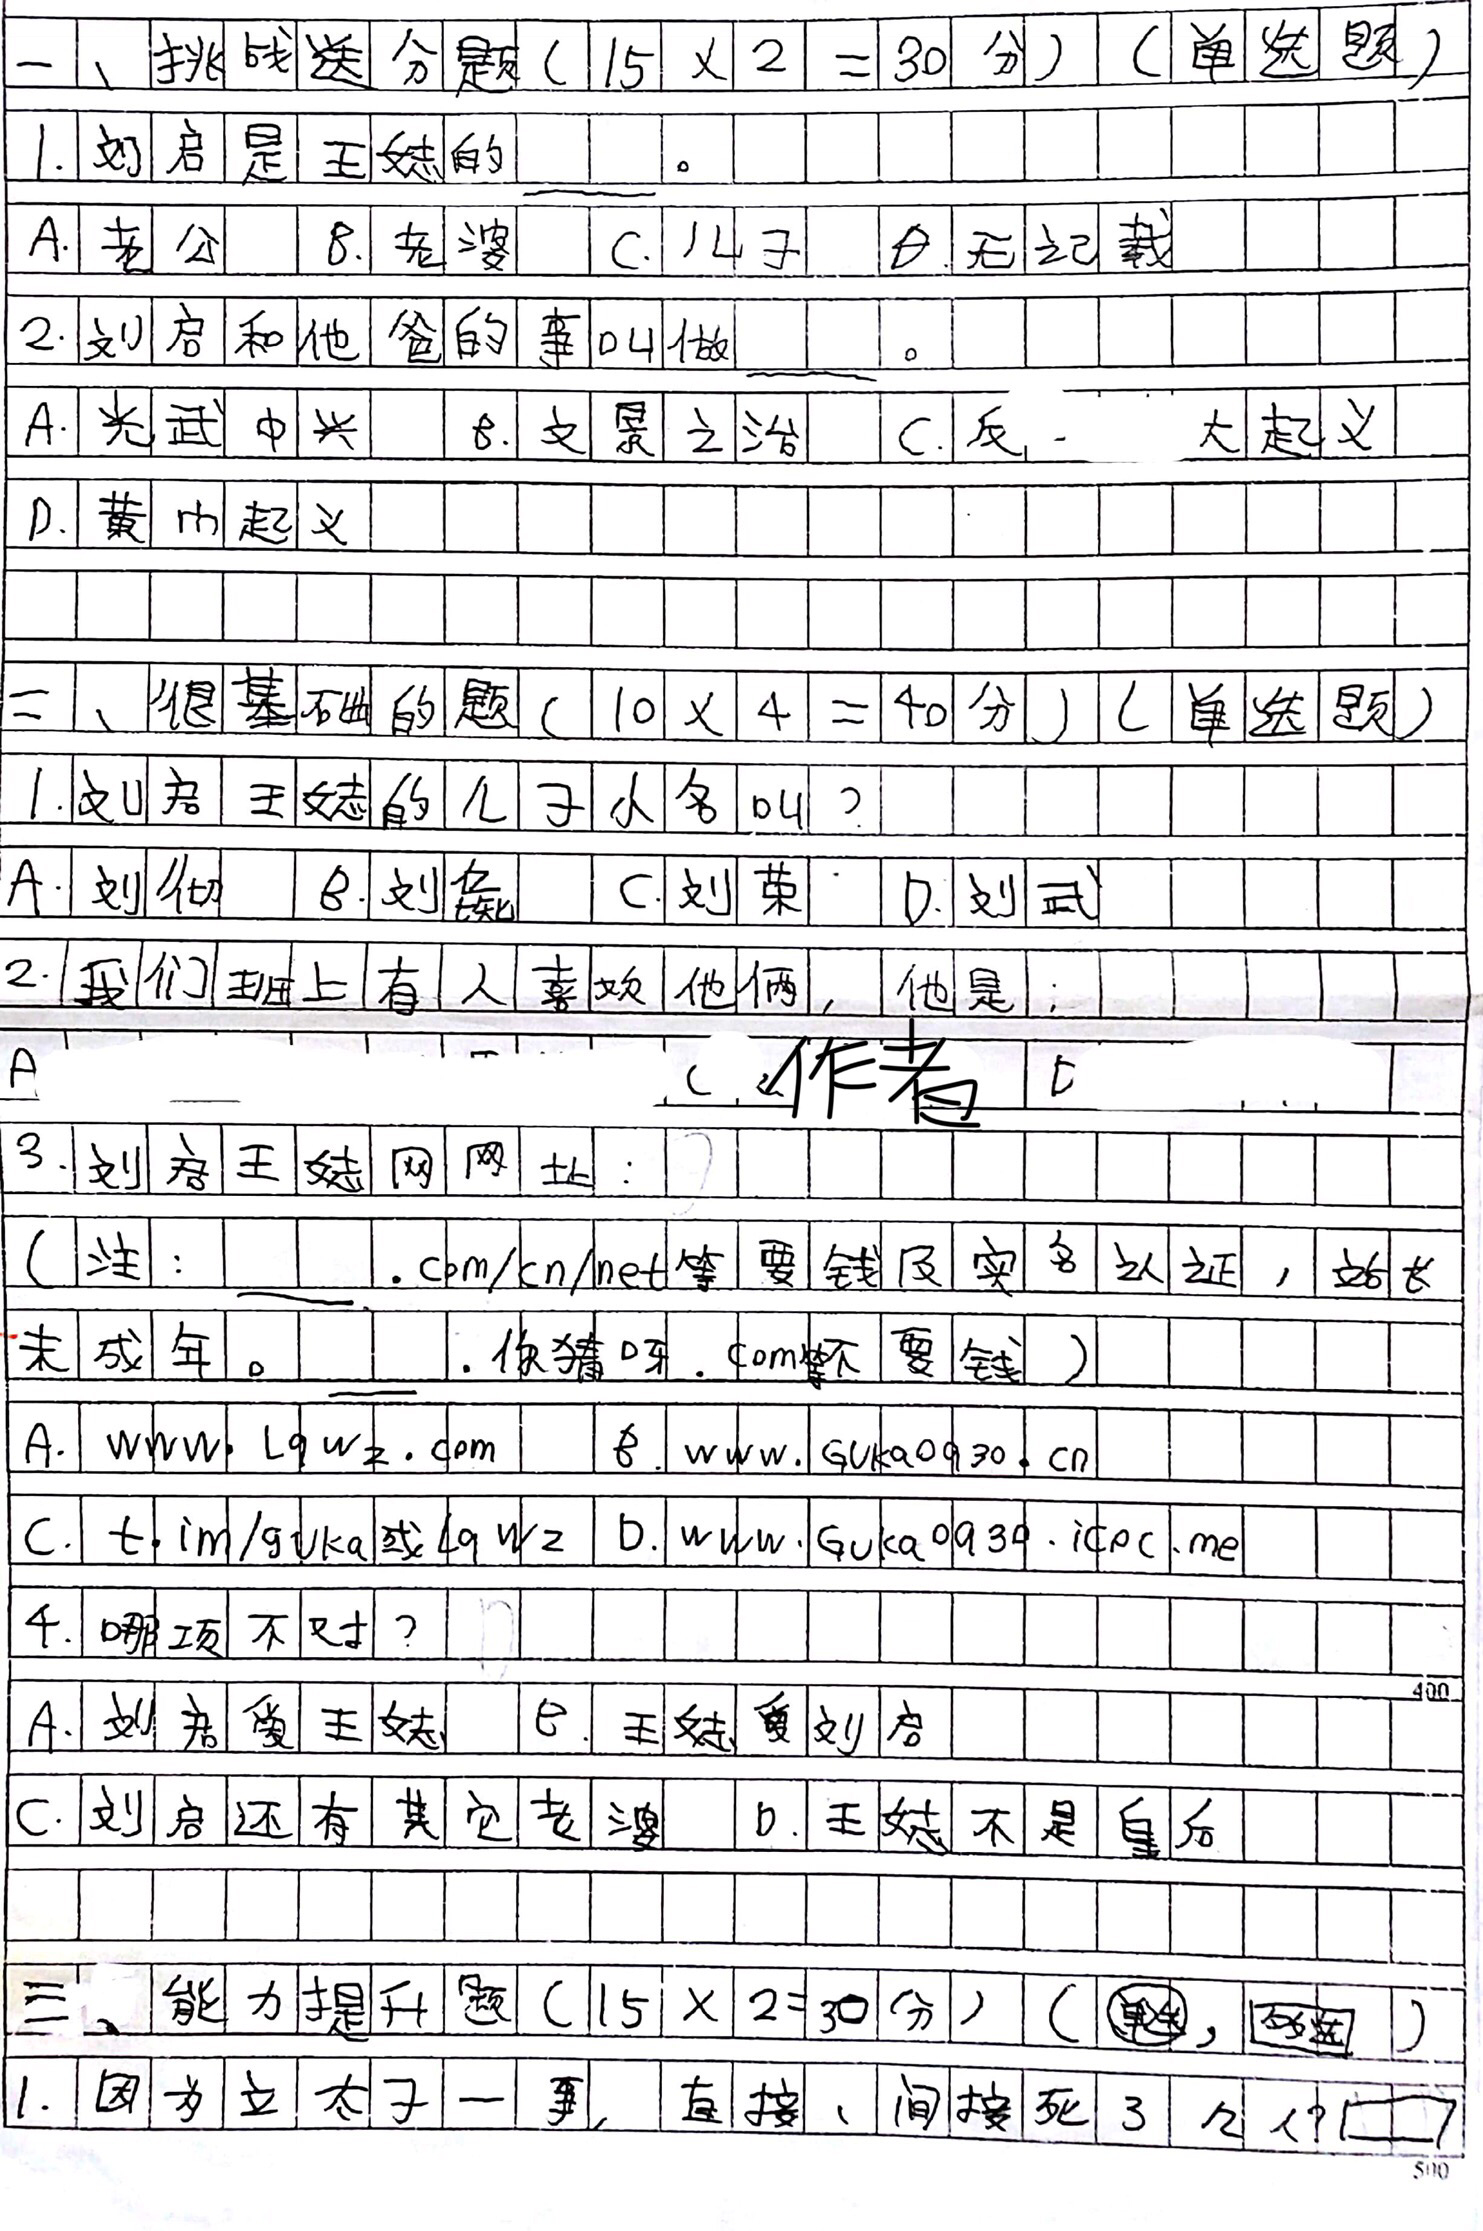 一、挑战送分题(15×2=30分)(单选题)
1.刘启是王娡的____。
A.老公 B.老婆 C.儿子 D.无记载
2.刘启和他爸的事叫做____。
A.光武中兴 B.文景之治 C.反 大起义
D.黄巾起义
二、很基础的题(10×4=40分)(单选题)
1.刘启王娡的儿子小名叫?
A.刘彻 B.刘彘 C.刘荣 D.刘武
2.我们班上有人喜欢他俩,他是:
A C 作者 D
3.刘启王娡网网址:
(注:____.com/cn/net等要钱及实名认证,站长
未成年。____.你猜呀.com等不要钱)
A.www.Lqwz.com B.www.Guka0930.cn
C.t.im/guka或Lqwz D.www.Guka0930.icoc.me
4.哪项不对?
A.刘启爱王娡 B.王娡爱刘启
C.刘启还有其它老婆 D.王娡不是皇后
三、能力提升题(15×2=30分)(单选,不定选)
1.因为立太子一事,直接、间接死了几人?
400
500